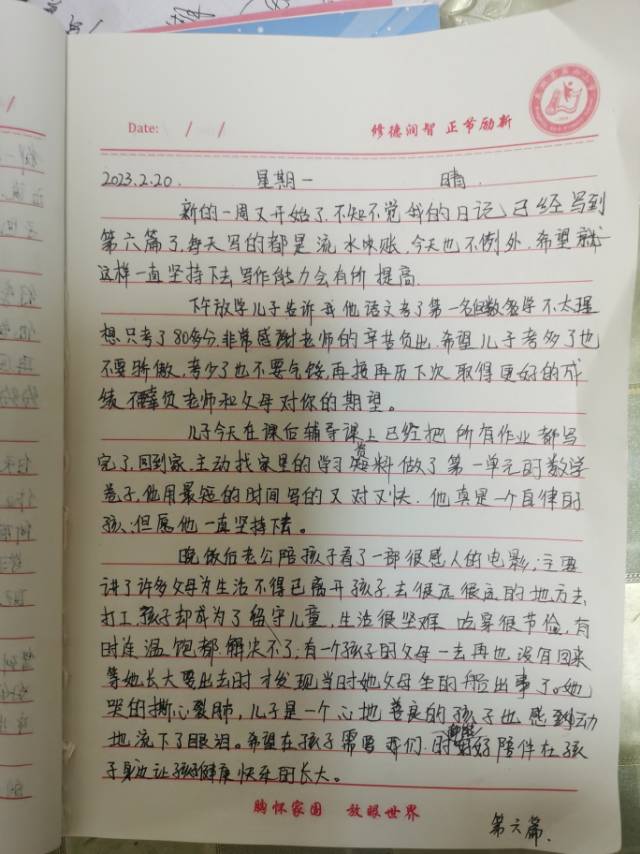 Date: / /
修德润智 正节励新
2023.2.20. 星期一 晴.
新的一周又开始了,不知不觉我的日记已经写到
第六篇了,每天写的都是流水账,今天也不例外,希望就
这样一直坚持下去写作能力会有所提高.
下午放学儿子告诉我他语文考了第一名但数学不太理
想只考了80多分,非常感谢老师的辛苦负出,希望儿子考多了也
不要骄傲,考少了也不要气馁,再接再历下次取得更好的成
绩不辜负老师和父母对你的期望。
儿子今天在课后辅导课上已经把所有作业都写
完了,回到家,主动找家里的学习资料做了第一单元的数学
卷子,他用最短的时间写的又对又快.他真是一个自律的
孩,但愿他一直坚持下去。
晚饭后老公陪孩子看了一部很感人的电影,主要
讲了许多父母为生活不得已离开孩子,去很远很远的地方去
打工,孩子却成为了留守儿童,生活很坚难 吃穿很节俭,有
时连温饱都解决不了,有一个孩子的父母一去再也没有回来
等她长大要出去时才发现当时她父母坐的船出事了。她
哭的撕心裂肺,儿子是一个心地善良的孩子也感到动
地流下了眼泪。希望在孩子需要我们时好好陪伴在孩
子身边让孩子健康快乐的长大。
胸怀家国 放眼世界
第六篇.